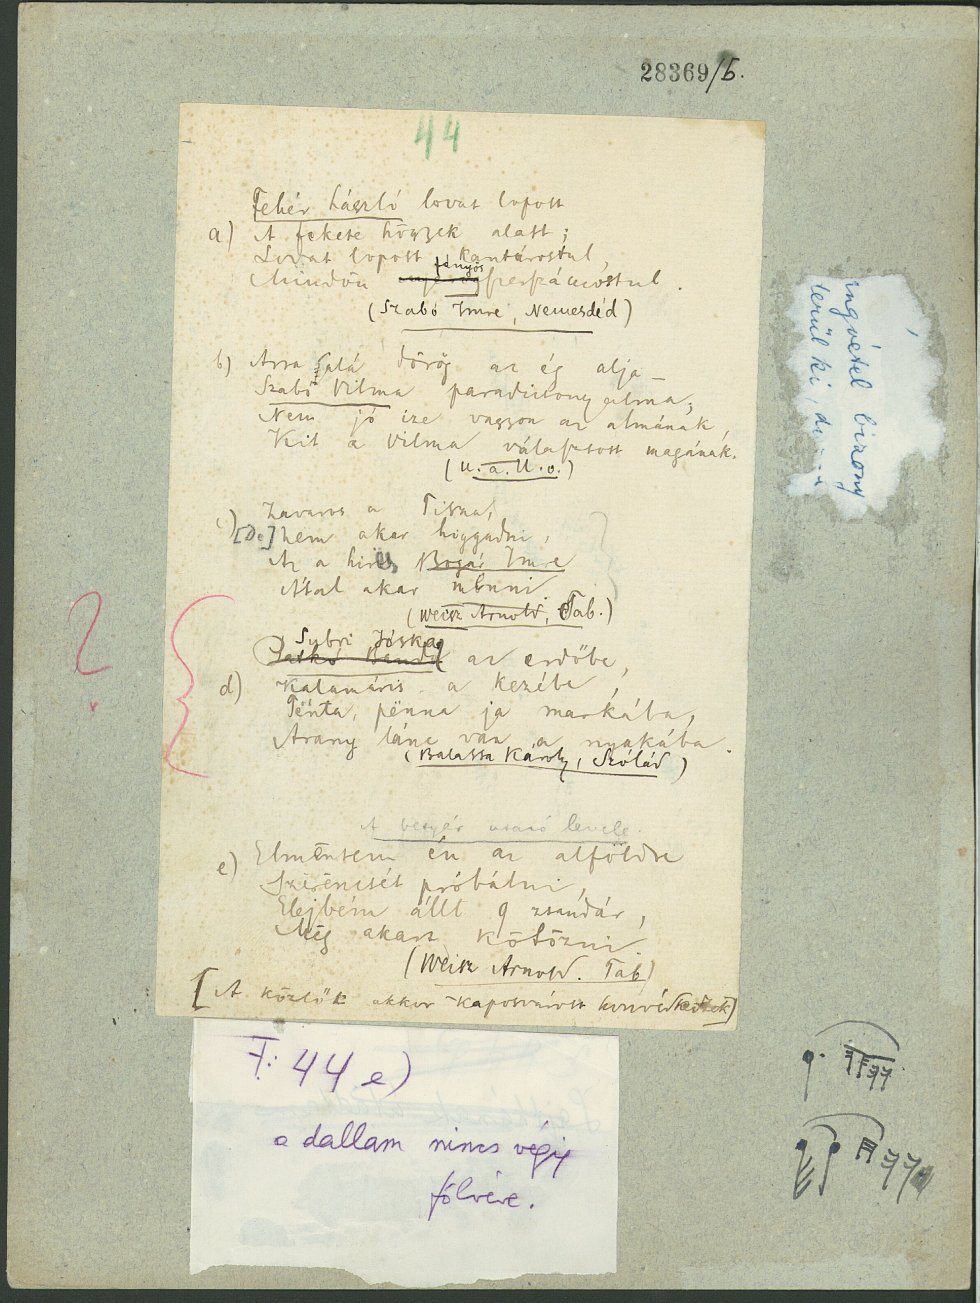 28369/5.
44
Fehér László lovat lopott
a) A fekete högyek alatt;
Lovat lopott kantárostul,
fényös
Mindön szerszámostul.
(Szabó Imre, Nemesdéd)
b) Arra alá dörög az ég alja –
Szabó Vilma paradicsony alma,
Nem jó ize vagyon az almának,
Kit a Vilma választott magának.
(U. a. U. o.)
c) Zavaros a Tisza,
[De] nem akar higgadni,
Az a hires Bogár Imre
Által akar mënni.
(Weisz Arnold, Tab.)
Sobri Jóska
Patkó Bandi az erdőbe,
d) Kalamáris a kezébe,
Tënta, pënna ja markába,
Arany lánc van a nyakába.
(Balassa Károly, Szólád)
?
A betyár utazó levele.
e) Elmëntem én az alföldre
Szëröncsét próbálni,
Elejbém állt 9 zsandár,
Mëg akart kötözni.
(Weisz Arnold. Tab)
[A közlők akkor Kaposvárott honvédkedtek]
F: 44 e)
a dallam nincs végig
fölvéve.
ingvétel bizony
terül ki, de